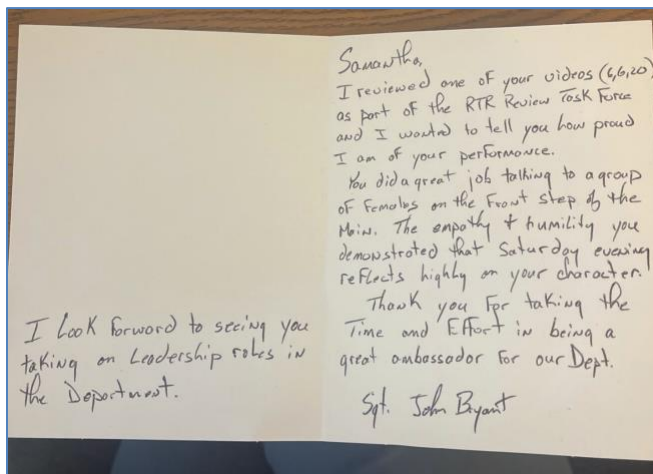 Samantha,
I reviewed one of your videos (6,6,20)
as part of the RTR Review Task Force
and I wanted to tell you how proud
I am of your performance.
You did a great job talking to a group
of Females on the Front step of the
Main. The empathy & humility you
demonstrated that Saturday evening
reflects highly on your character.
Thank you For taking the
Time and Effort in being a
great ambassador For our Dept.
Sgt. John Bryant
I Look Forward to seeing you
taking on Leadership roles in
the Department.